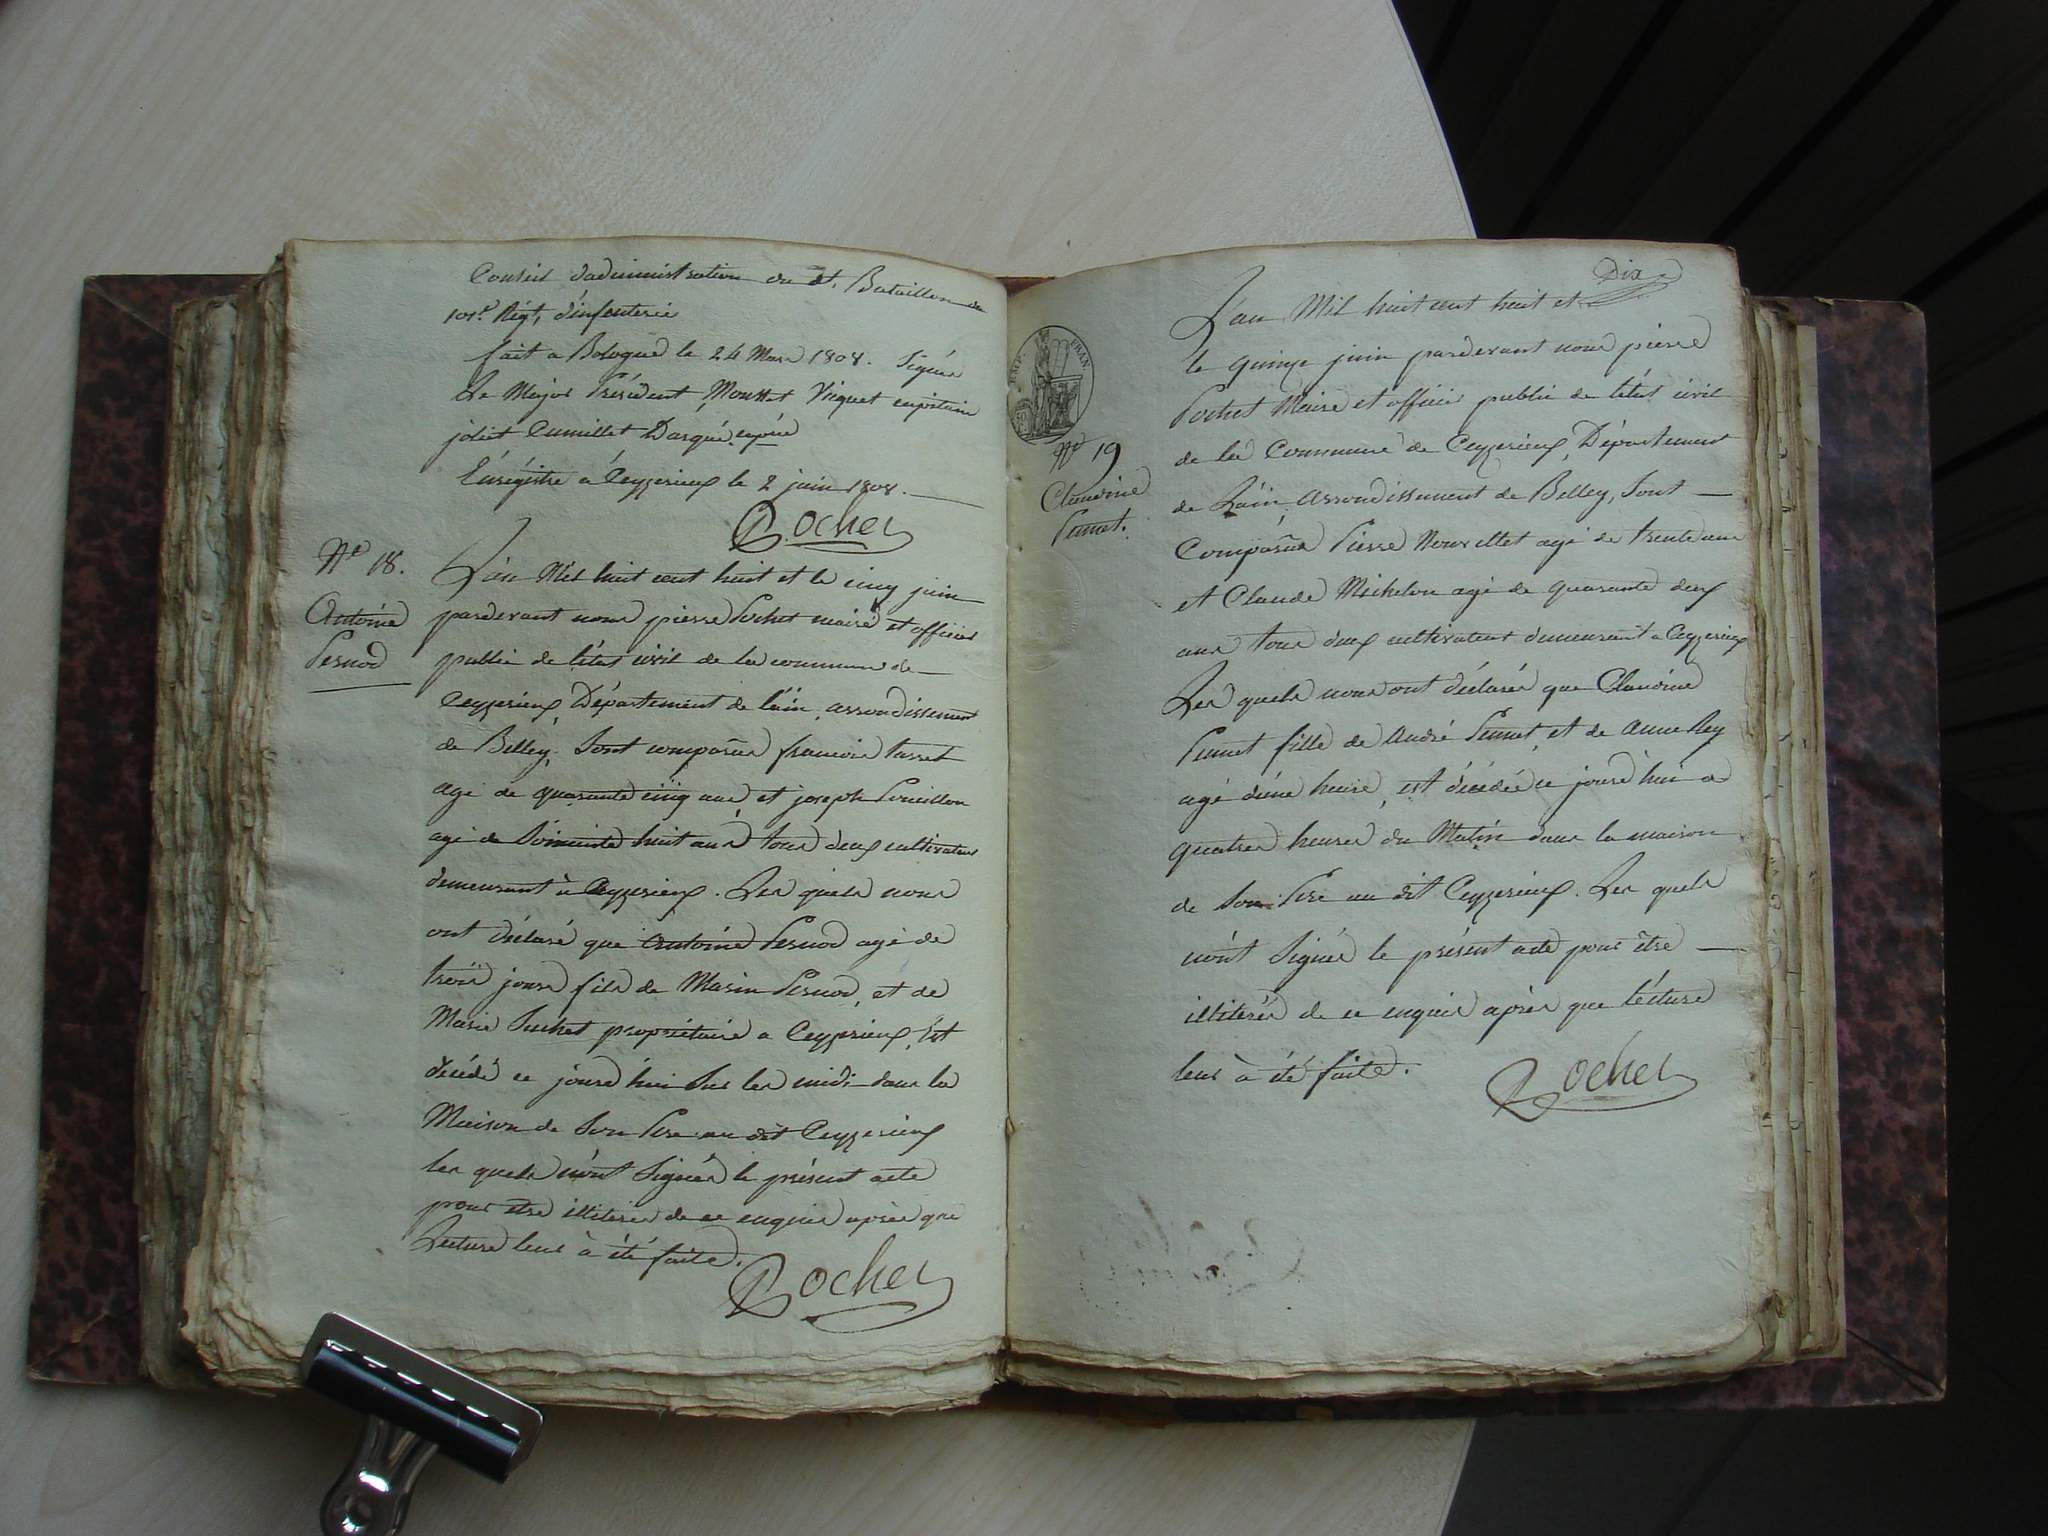 Conseil dadministration du dt. Bataillon du
101e. Régt, dinfenterie
fait a Bologne le 24 Mars 1808. Signés
Le Major Président, Mouttet Viguet capitain
joliet Cumillet Darqué
Enrégistré à Ceyzerieux le 2 juin 1808.
Rochet
No 18.
Antoine
Pernod
L'an Mil huit cent huit et le cinq juin
pardevant nous pierre Pochet maire et officier
public de létat civil de la commune de
Ceyzerieux, Département de l'ain, arrondissement
de Belley, Sont comparus francois tasset
agé de quarante cinq ans, et joseph Pouillon
agé de Soixante huit ans tous deux cultivateurs
demeurant à Ceyzerieux. Les quels nous
ont déclaré que Antoine Pernod agé de
trois jours fils de Marin Pernod, et de
Marie Suchet propriétaire a Ceyzerieux, Est
décédé ce jourd'hui Sur les midi dans la
Maison de Son Pere au dit Ceyzerieux
les quels n'ont Signés le présent acte
pour etre illiterés de ce enquis après que
Lecture leur à été faite.
Rochet
Dix
EMP. FRAN.
No 19
Claudine
Pemet.
L'an Mil huit cent huit et
le quinze juin pardevant nous pierre
Pochet Maire et officier public de létat civil
de la Commune de Ceyzerieux, Département
de Lain, arrondissement de Belley, Sont
Comparus Pierre Nouvellet agé de trente ans
et Claude Michelon agé de quarante deux
ans tous deux cultivateurs demeurant a Ceyzerieux
Les quels nous ont déclarés que Claudine
Pemet fille de André Pemet, et de Anne Rey
agé d'une heure, est décédée ce jourd'hui a
quatres heures du Matin dans la maison
de Son Pere au dit Ceyzerieux. Les quels
n'ont Signés le présent acte pour être
illiterés de ce enquis après que lécture
leur à été faite.
Rochet